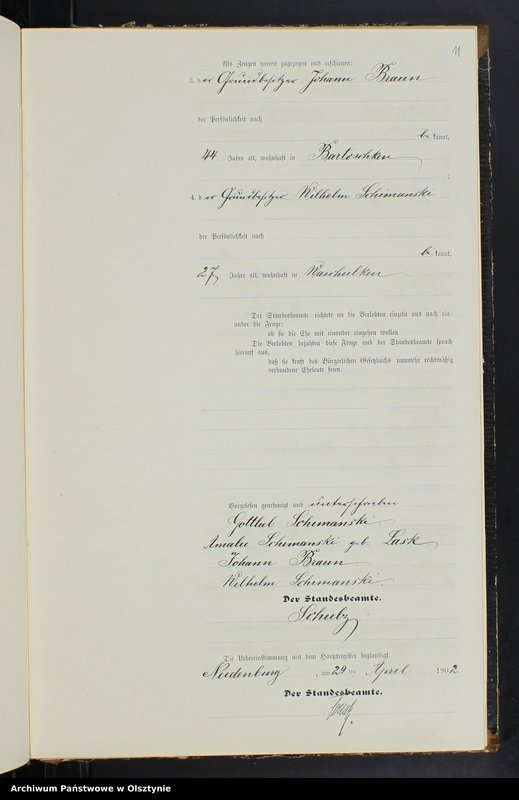 11
Als Zeugen waren zugezogen und erschienen:
3. der Grundbesitzer Johann Braun
der Persönlichkeit nach
be kannt,
44 Jahre alt, wohnhaft in Bartoschken
4. der Grundbesitzer Wilhelm Schimanski
der Persönlichkeit nach
be kannt,
27 Jahre alt, wohnhaft in Waschulken
Der Standesbeamte richtete an die Verlobten einzeln und nach ein-
ander die Frage:
ob sie die Ehe mit einander eingehen wollen.
Die Verlobten bejahten diese Frage und der Standesbeamte sprach
hierauf aus,
daß sie kraft des Bürgerlichen Gesetzbuchs nunmehr rechtmäßig
verbundene Eheleute seien.
Vorgelesen genehmigt und unterschrieben
Gottlieb Schimanski
Amalie Schimanski geb. Lask
Johann Braun
Wilhelm Schimanski
Der Standesbeamte.
Schulz
Die Uebereinstimmung mit dem Hauptregister beglaubigt
Neidenburg, am 29 ten April 1902
Der Standesbeamte.
Archiwum Państwowe w Olsztynie